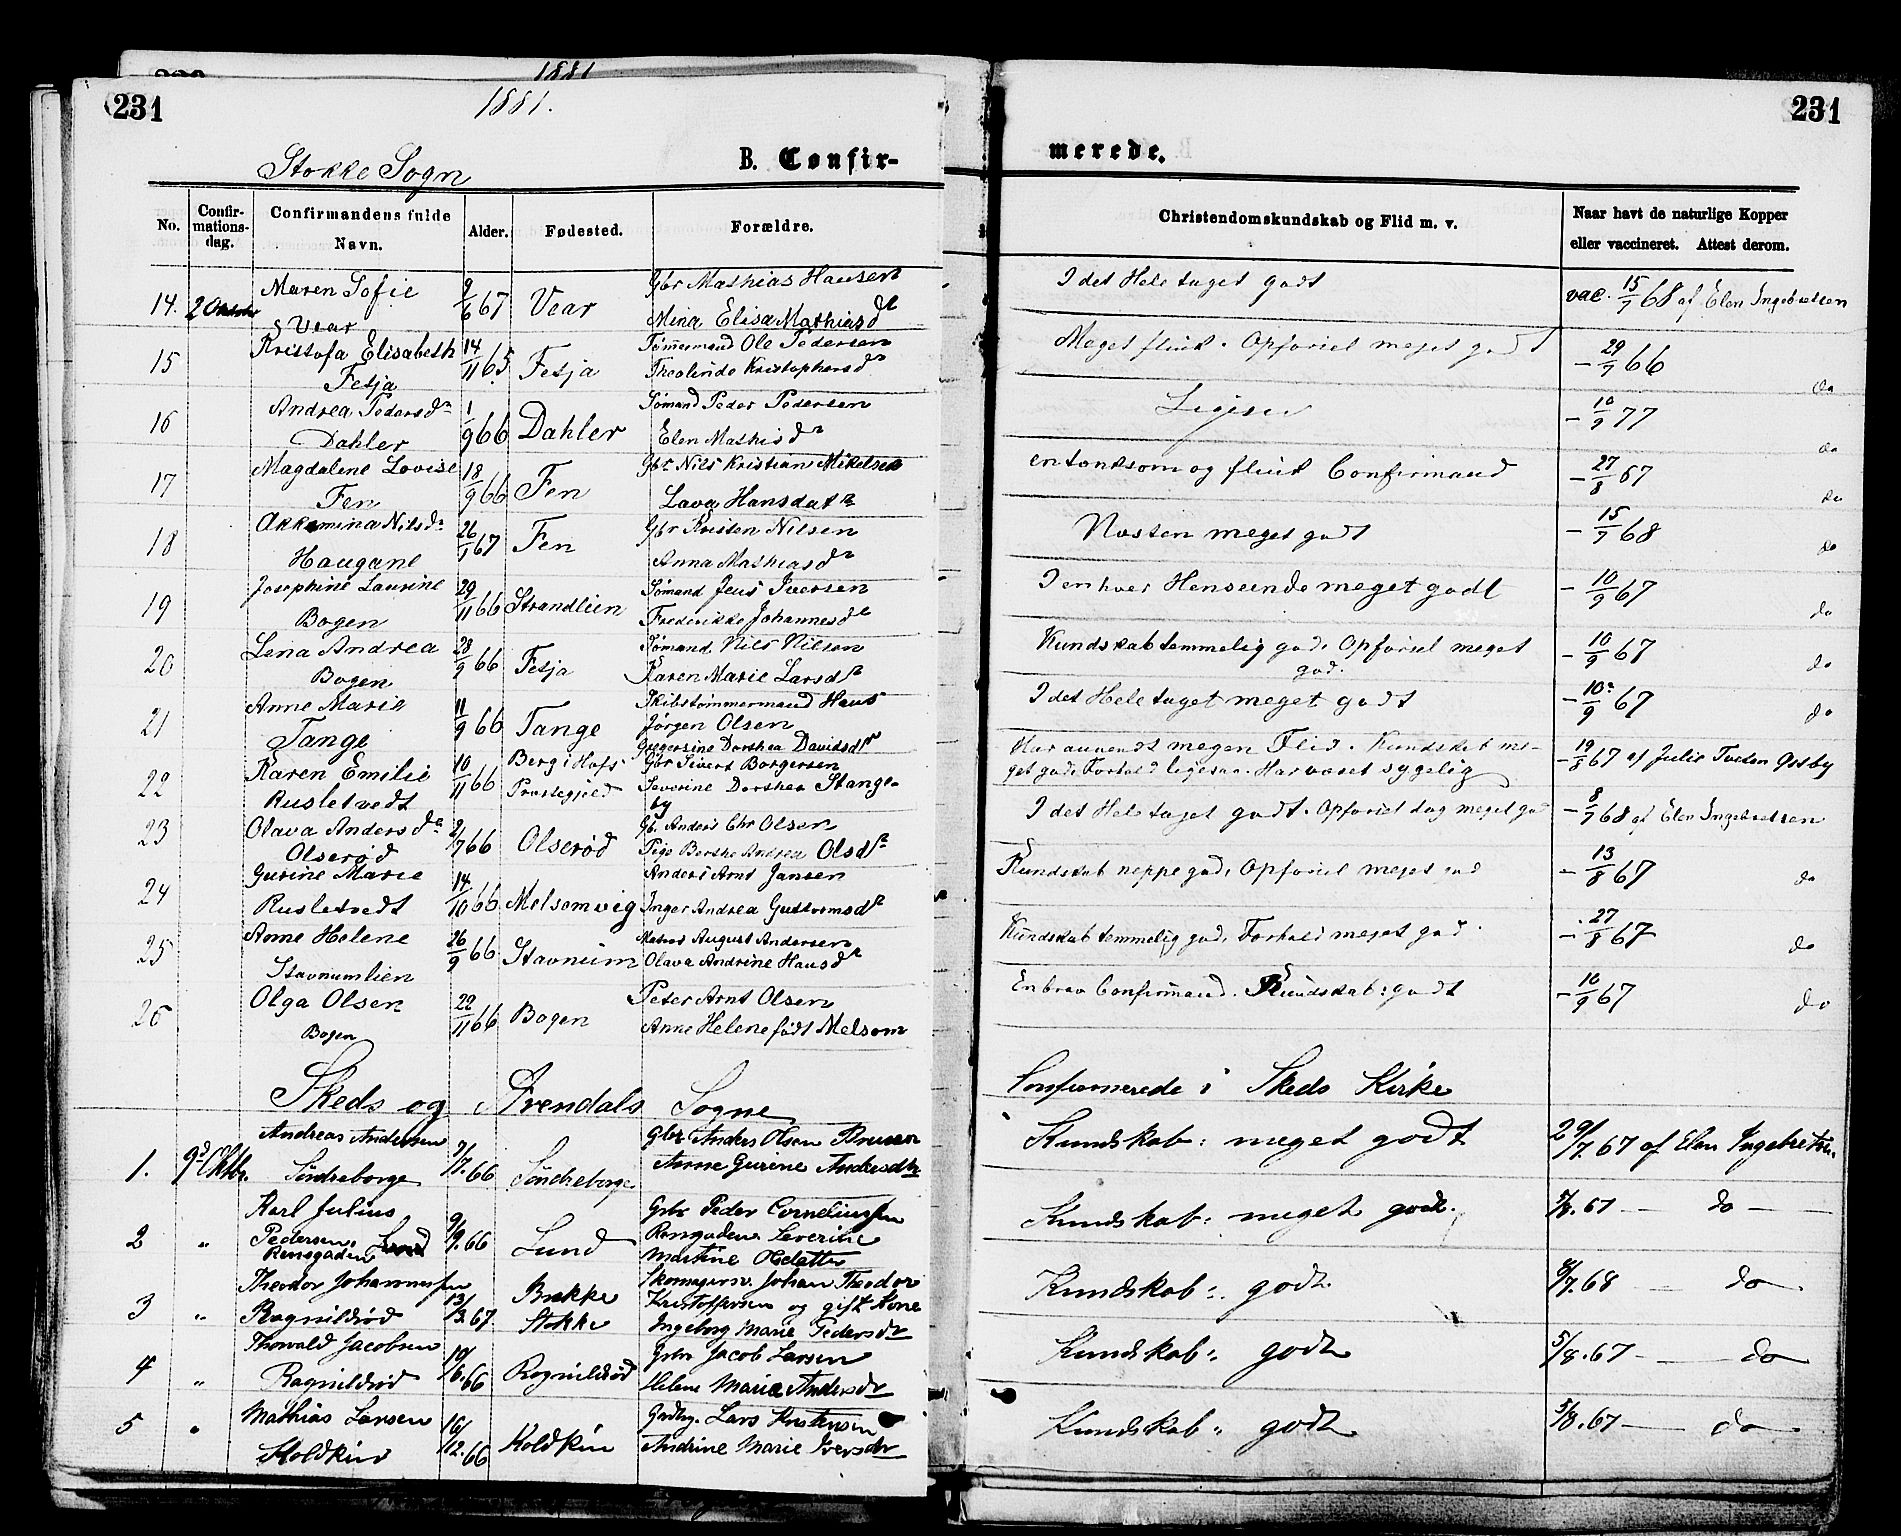 231
1881.
231
Stokke Sogn
B. Confir-
merede.
No.
Confir-
mations-
dag.
Confirmandens fulde
Navn.
Alder.
Fødested.
Forældre.
Christendomskundskab og Flid m. v.
Naar havt de naturlige Kopper
eller vaccineret. Attest derom.
14. 2 Oktober Maren Sofie Vear 9/6 67 Vear Gbr Mathias Hansen
Mina Elisa Mathiasd
I det Hele taget godt vac. 15/7 68 af Elen Ingebretsen
15 Kristofa Elisabeth Fesja 14/11 65 Fesja Tømmermand Ole Pedersen
Theolinde Kristophersd
Meget flink. Opførsel meget god - 29/7 66 do
16 Andrea Pedersdr Dahler 1/9 66 Dahler Sømand Peder Pedersen
Elen Mathisdr
Ligesaa - 10/9 77 do
17 Magdalene Lovise Fen 18/9 66 Fen Gbr Nils Kristian Mikelsen
Lava Hansdatr
en tonksom og flink Confirmand - 27/8 67 do
18 Akkemina Nilsdr Haugane 26/1 67 Fen Gbr Kristen Nilsen
Anna Mathiasdr
Næsten meget godt - 15/7 68 do
19 Josephine Laurine Bogen 29/11 66 Strandlien Sømand Jens Iversen
Frederikke Johannesdr
I enhver Henseende meget godt - 10/9 67 do
20 Lena Andrea Bogen 28/9 66 Fesja Sømand Nils Nilsen
Karen Marie Larsdr
Kundskab temmelig god. Opførsel meget
god. - 10/9 67 do
21 Anne Marie Tange 11/9 66 Tange Skibstømmermand Hans
Jørgen Olsen
Gregersine Dorthea Davidsdr
I det Hele taget meget godt - 10/9 67 do
22 Karen Emilie Rusletvedt 10/11 66 Berg i Hofs
Præstegjeld Gbr Sivert Borgersen
Severine Dorthea Stange-
by
Har anvendt megen Flid. Kundskab me-
get god. Forhold ligesaa. Har været sygelig - 19/8 67 af Julie Tveten Ørsby
23 Olava Andersdr Olserød 2/7 66 Olserød Gb. Anders Chr Olsen
Pige Berthe Andrea Olsdr
I det Hele taget godt. Opførsel dog meget god - 8/7 68 af Elen Ingebretsen
24 Gurine Marie Rusletvedt 14/10 66 Melsomvig Anders Arnt Jansen
Inger Andrea Guttormsdr
Kundskab neppe god, Opførsel meget god - 13/8 67 do
25 Anne Helene Stavnumlien 26/9 66 Stavnum Matros August Andersen
Olava Andrine Hansdr
Kundskab temmelig god, Forhold meget god - 27/8 67 do
26 Olga Olsen Bogen 22/11 66 Bogen Peter Arnt Olsen
Anne Helene født Melsom
En brav Confirmand. Kundskab: godt - 10/9 67 do
Skeds og Arendals Sogne
Confirmerede i Skeds Kirke
1. 9d Oktbr. Andreas Andersen Søndreborge 7/7.66 Søndreborge Gbr Anders Olsen Bruun
Anne Gurine Andersdtr
Kundskab: meget godt 29/7 67 af Elen Ingebretsen.
2 " Karl Julius
Pedersen
Rønsgaden Lund 9/9.66 Lund Gbr Peder Corneliussen
Rønsgaden Severine
Martine Hedetta
Kundskab: meget godt. 5/8.67 — do —
3 " Theodor Johannessen Ragnildrød 13/3.67. Bække
Stokke Skomagersv. Johan Theodor
Kristoffersen og gift Kone
Ingeborg Marie Pedersdr
Kundskab: godt 8/7.68 — do
4 " Thorvald Jacobsen Ragnildrød 10/6.66 Ragnildrød Gbr Jacob Larsen
Helene Marie Andersdr
Kundskab: godt 5/8.67 — do
5 " Mathias Larsen Holdkin 16/12.66 Holdkin Gårdbr. Lars Kristensen
Andrine Marie Iversdr
Kundskab: godt 5/8.67 — do